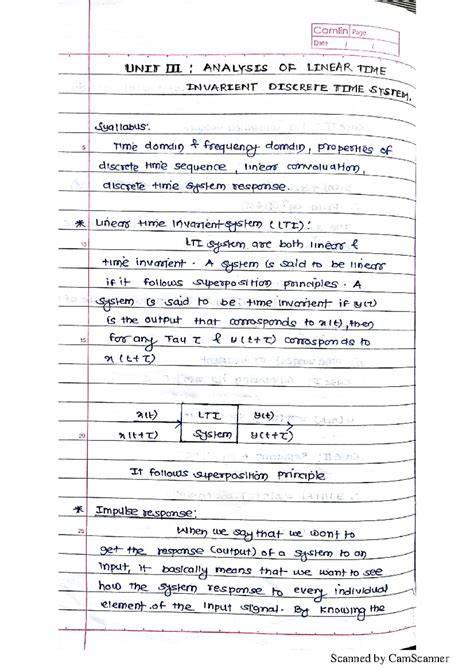 Camlin Page
Date / /
UNIT III : ANALYSIS OF LINEAR TIME
INVARIENT DISCRETE TIME SYSTEM.
Syallabus:
5 Time domain & frequency domain, properties of
discrete time sequence, linear convoluation,
discrete time system response.
* Linear time Invarient system (LTI):
10 LTI system are both linear &
time invarient. A system is said to be linear
if it follows superposition principles. A
system is said to be time invarient if y(t)
is the output that corresponds to x(t), then
15 for any Tau τ & y(t+τ) corresponds to
x(t+τ)
x(t) LTI y(t)
20 x(t+τ) system y(t+τ)
It follows superposition principle
* Impulse response:
25 When we say that we want to
get the response (output) of a system to an
input, it basically means that we want to see
how the system response to every individual
element of the input signal. By knowing the
Scanned by CamScanner